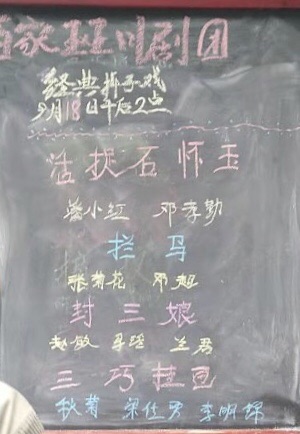 家班川剧团
经典折子戏
9月18日午后2点
活捉石怀玉
小红 邓孝勤
拦马
张菊花 邓旭
封三娘
赵敏 兰君
三巧挂画
秋菊 梁仕男 李明锦